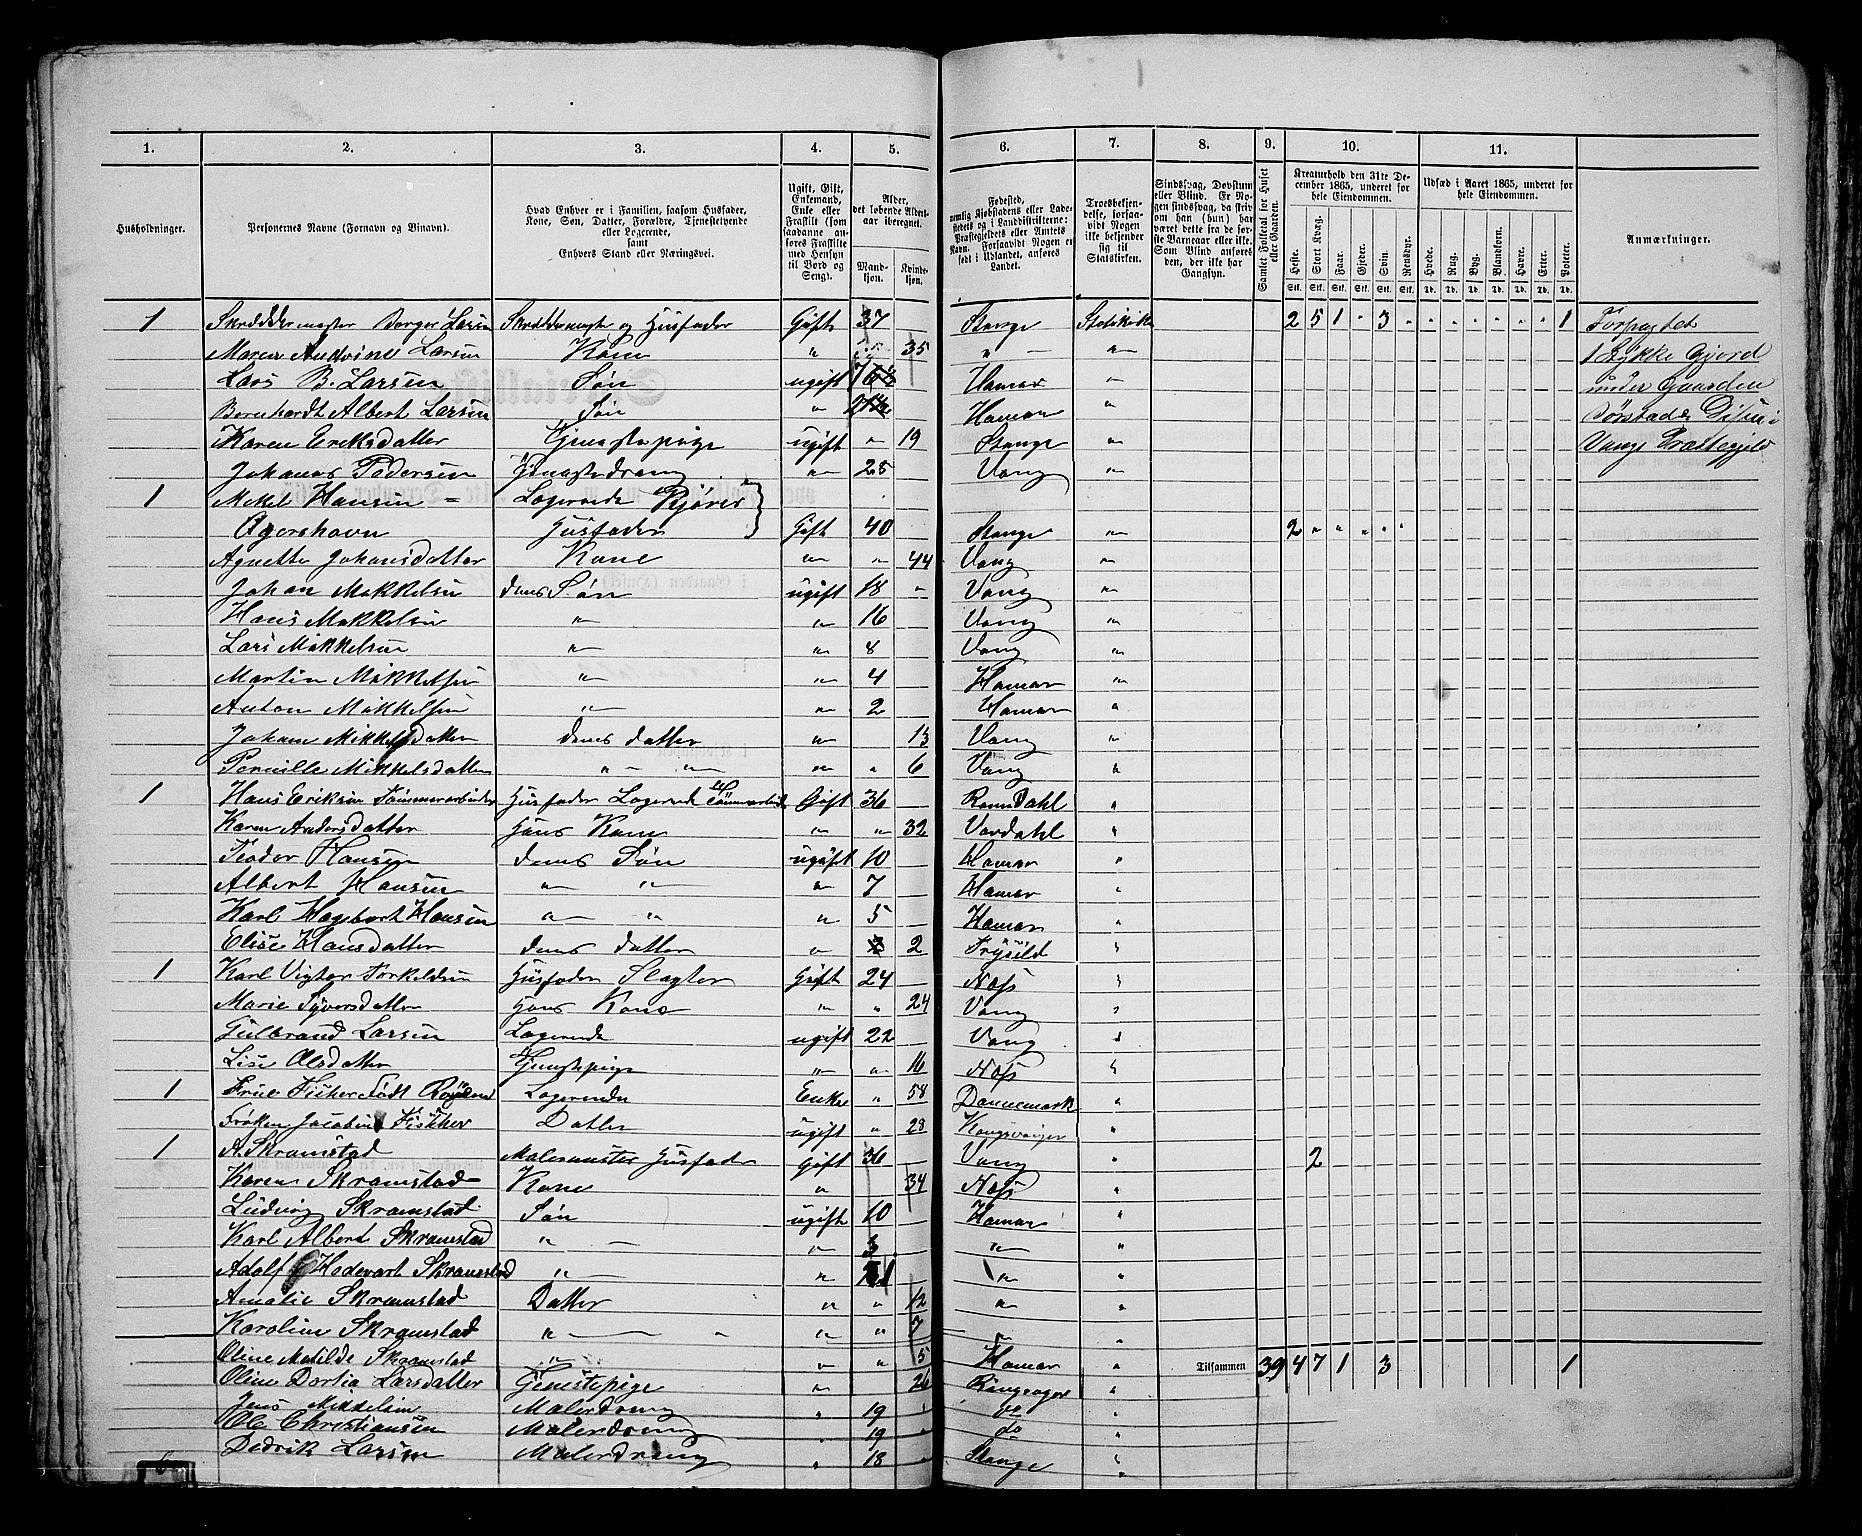 1. 2. 3. 4. 5. 6. 7. 8. 9. 10. 11.
Husholdninger.
Personernes Navne (Fornavn og Binavn).
Hvad Enhver er i Familien, saasom Husfader, Kone, Søn, Datter, Forældre, Tjenestetyende eller Logerende, samt Enhvers Stand eller Næringsvei.
Ugift, Gift, Enkemand, Enke eller Fraskilt (som saadanne anføres Fraskilte med Hensyn til Bord og Seng).
Alder, det løbende Aldersaar iberegnet.
Mandkjøn. Kvindekjøn.
Fødested, nemlig Kjøbstadens eller Ladestedets og i Landdistrikterne: Præstegjeldets eller Amtets Navn. Forsaavidt Nogen er født i Udlandet, anføres Landet.
Troesbekjendelse, forsaavidt Nogen ikke bekjender sig til Statskirken.
Sindssvag, Døvstum eller Blind. Er Nogen sindssvag, da skrives om han (hun) har været dette fra de første Barneaar eller ikke. Som Blind anføres den, der ikke har Gangsyn.
Samlet Folketal for Huset eller Gaarden.
Kreaturhold den 31te December 1865, underet for hele Eiendommen.
Heste. Stort Kvæg. Faar. Gjeder. Svin. Rensdyr.
Stk. Stk. Stk. Stk. Stk. Stk.
Udsæd i Aaret 1865, underet for hele Eiendommen.
Hvede. Rug. Byg. Blandkorn. Havre. Erter. Poteter.
Td. Td. Td. Td. Td. Td. Td.
Anmærkninger.
1 Skræddermester Borger Larsen Skræddermester og Husfader Gift 37 Stange Statskirke 2 5 1 - 3 1 Forpagtet
Maren Andrine Larsen Kone " 35 " " 1 Stykke Gjord
Lars B. Larsen Søn ugift Hamar " under Gaarden
Bernhardt Albert Larsen Søn " Hamar "
Karen Eriksdatter Tjenestepige ugift " 19 Stange " Vangs Præstegjeld
Johanes Pedersen Tjenestedreng " 25 Vang "
1 Mekel Hansen = Logerende Kjører
Agershavn Husfader Gift 40 Stange " 2 " " " " "
Agnette Johansdatter Kone " " 44 Vang "
Johan Mikkelsen Deres Søn ugift 18 " Vang "
Hans Mikkelsen " " 16 Vang "
Lars Mikkelsen " " 8 Vang "
Martin Mikkelsen " " 4 Hamar "
Anton Mikkelsen " " 2 Hamar "
Johane Mikkelsdatter Deres Datter " 13 Vang "
Pernille Mikkelsdatter " " " " 6 Vang "
1 Hans Eriksen Tømmerarbeider Husfader Logerende Tømmerarbeider Gift 36 Romsdahl "
Karen Andersdatter Hans Kone " " 32 Verdahl "
Teodor Hansen Deres Søn ugift 10 Hamar "
Albert Hansen " " " 7 Hamar "
Karl Hagebart Hansen " " " 5 Hamar "
Elise Hansdatter Deres Datter " 2 Trysild "
1 Karl Vigtor Torkeldsen Husfader Slagter Gift 24 Næs "
Marie Syversdatter Hans Kone " " 24 Vang "
Gulbrand Larsen Logerende ugift 22 Vang "
Lise Olsdatter Tjenestepige " " 16 Næs "
1 Frue Fischer Født Logerende Enke " 58 Dannemark "
Frøken Jacobine Fischer Datter ugift " 28 Kongsvinger "
1 A. Skramstad Malermester Husfader Gift 36 Vang " 2
Karen Skramstad Kone " 34 Næs "
Ludvig Skramstad Søn ugift 10 Hamar "
Karl Albert Skramstad " " 3 " "
Adolf Skramstad " " 1 " "
Amalie Skramstad Datter " " 12 " "
Karoline Skramstad " " " 7 " "
Oline Matilde Skramstad " " " 5 Hamar " Tilsammen 39 4 7 1 3 1
Oline Dortia Larsdatter Tjenestepige " 26 Ringsager "
Jens Mikkelsen Malerdreng " 19 do "
Ole Christiansen Malerdreng " 19 do "
Dedrik Larsen Malerdreng " 18 Stange "